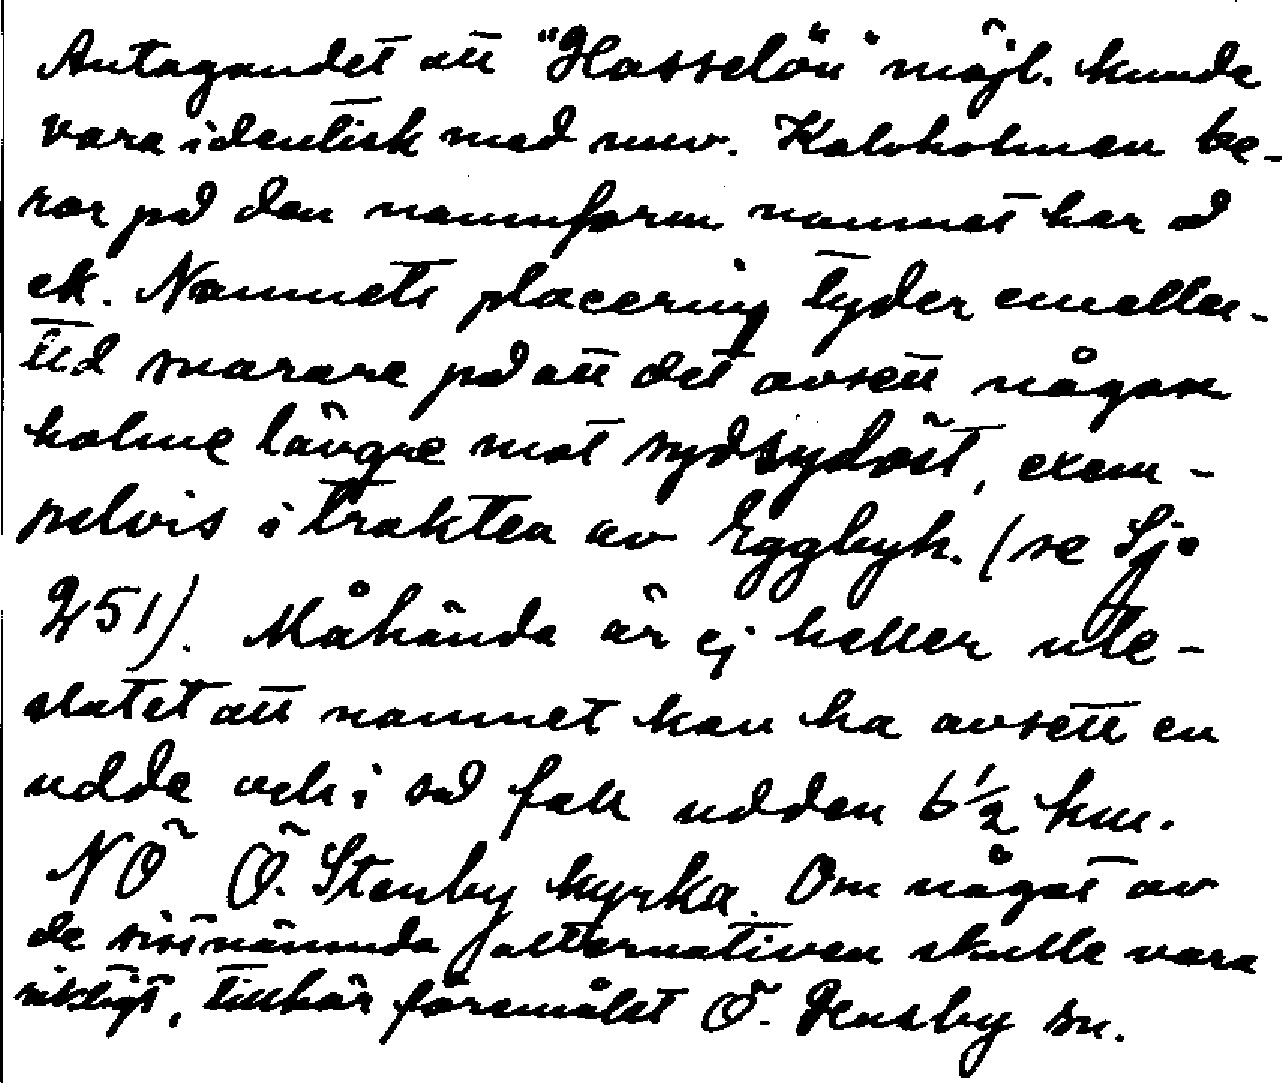 Antagandet att "Hasselön" möjl. kunde
vara identisk med nuv. Kalvholmen be-
ror på den namnform namnet har å
ek. Namnets placering tyder emeller-
tid snarare på att det avsett någon
holme längre mot sydsydöst, exem-
pelvis i trakten av Eggbyh. (se Sjö
251). Måhända är ej heller ute-
slutet att namnet kan ha avsett en
udde och i så fall udden 6½ km.
NÖ Ö. Stenby kyrka. Om något av
de sistnämnda alternativen skulle vara
riktigt, tillhör föremålet Ö. Stenby sn.